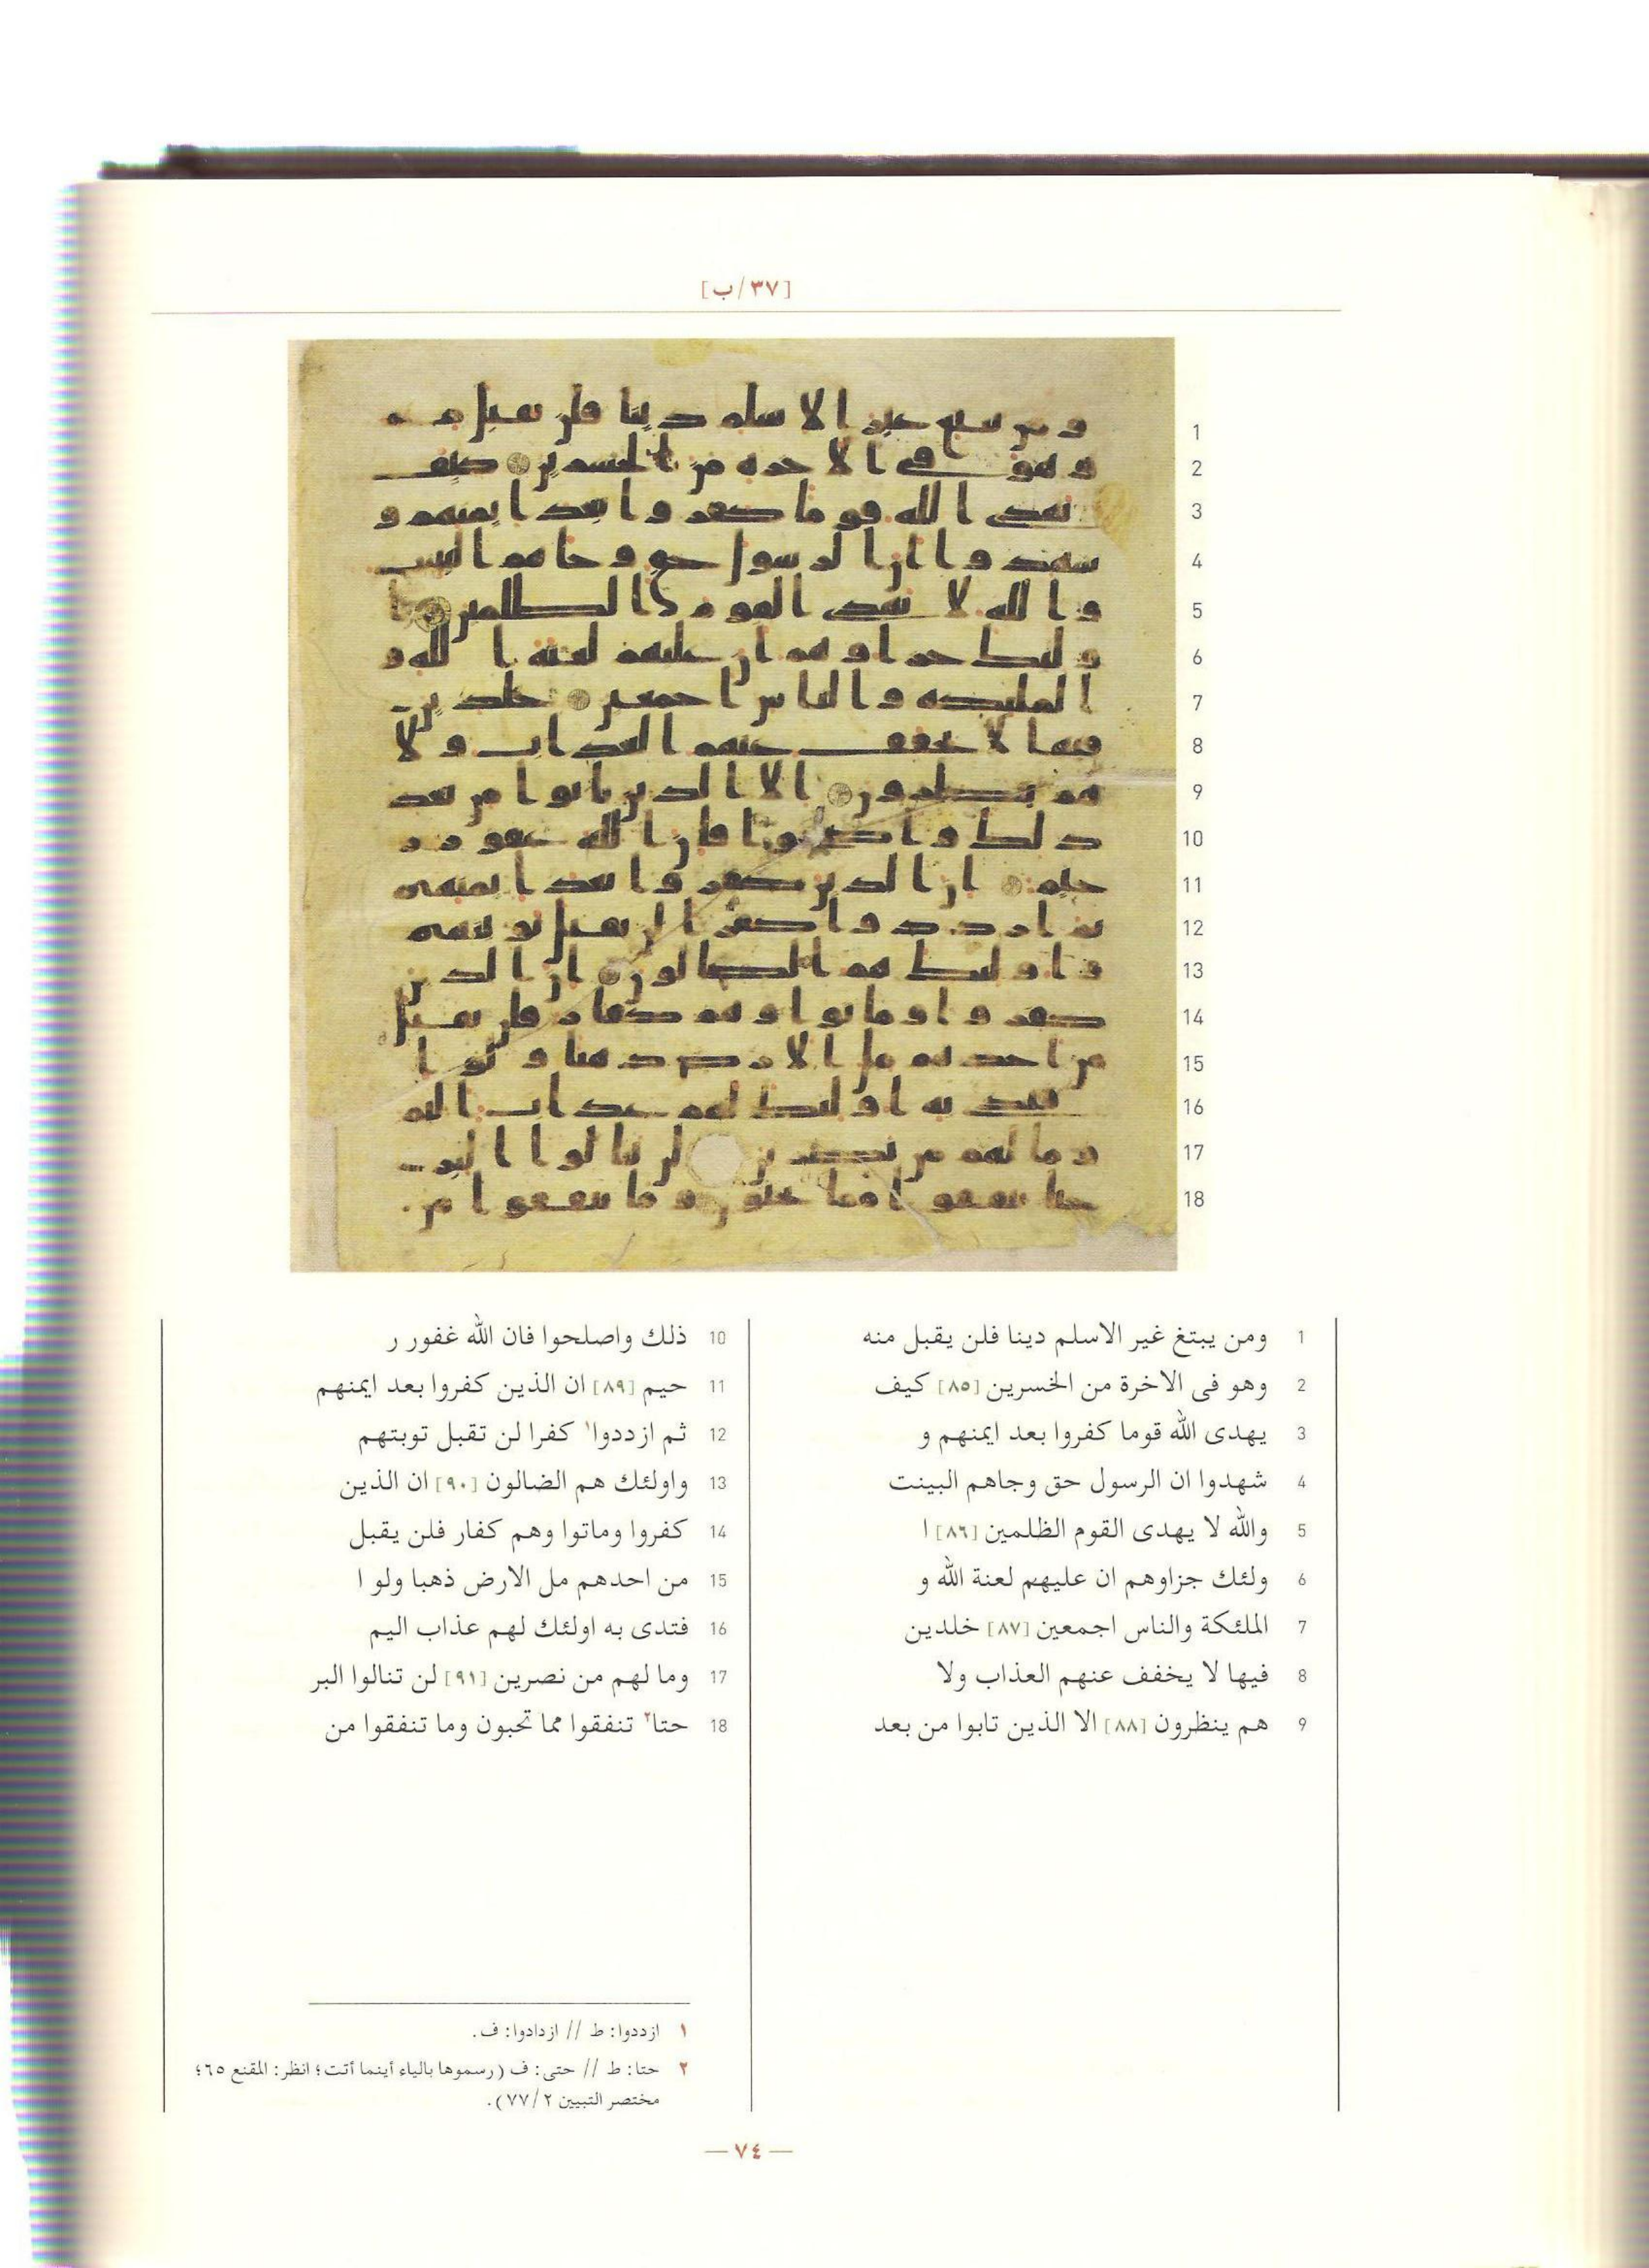 [٣٧/ب]
1 ومن يبتغ غير الاسلم دينا فلن يقبل منه
2 وهو فى الاخرة من الخسرين [٨٥] كيف
3 يهدى الله قوما كفروا بعد ايمنهم و
4 شهدوا ان الرسول حق وجاهم البينت
5 والله لا يهدى القوم الظلمين [٨٦] ا
6 ولئك جزاوهم ان عليهم لعنة الله و
7 الملئكة والناس اجمعين [٨٧] خلدين
8 فيها لا يخفف عنهم العذاب ولا
9 هم ينظرون [٨٨] الا الذين تابوا من بعد
10 ذلك واصلحوا فان الله غفور ر
11 حيم [٨٩] ان الذين كفروا بعد ايمنهم
12 ثم ازددوا١ كفرا لن تقبل توبتهم
13 واولئك هم الضالون [٩٠] ان الذين
14 كفروا وماتوا وهم كفار فلن يقبل
15 من احدهم مل الارض ذهبا ولو ا
16 فتدى به اولئك لهم عذاب اليم
17 وما لهم من نصرين [٩١] لن تنالوا البر
18 حتا٢ تنفقوا مما تحبون وما تنفقوا من
١ ازددوا: ط // ازدادوا: ف.
٢ حتا: ط // حتى: ف (رسموها بالياء أينما أتت؛ انظر: المقنع ٦٥؛
مختصر التبيين ٢/٧٧).
— ٧٤ —